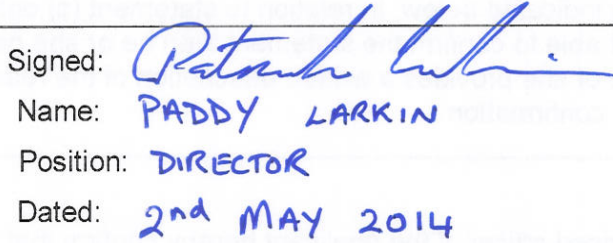 Signed: Patrick Larkin
Name: PADDY LARKIN
Position: DIRECTOR
Dated: 2nd MAY 2014